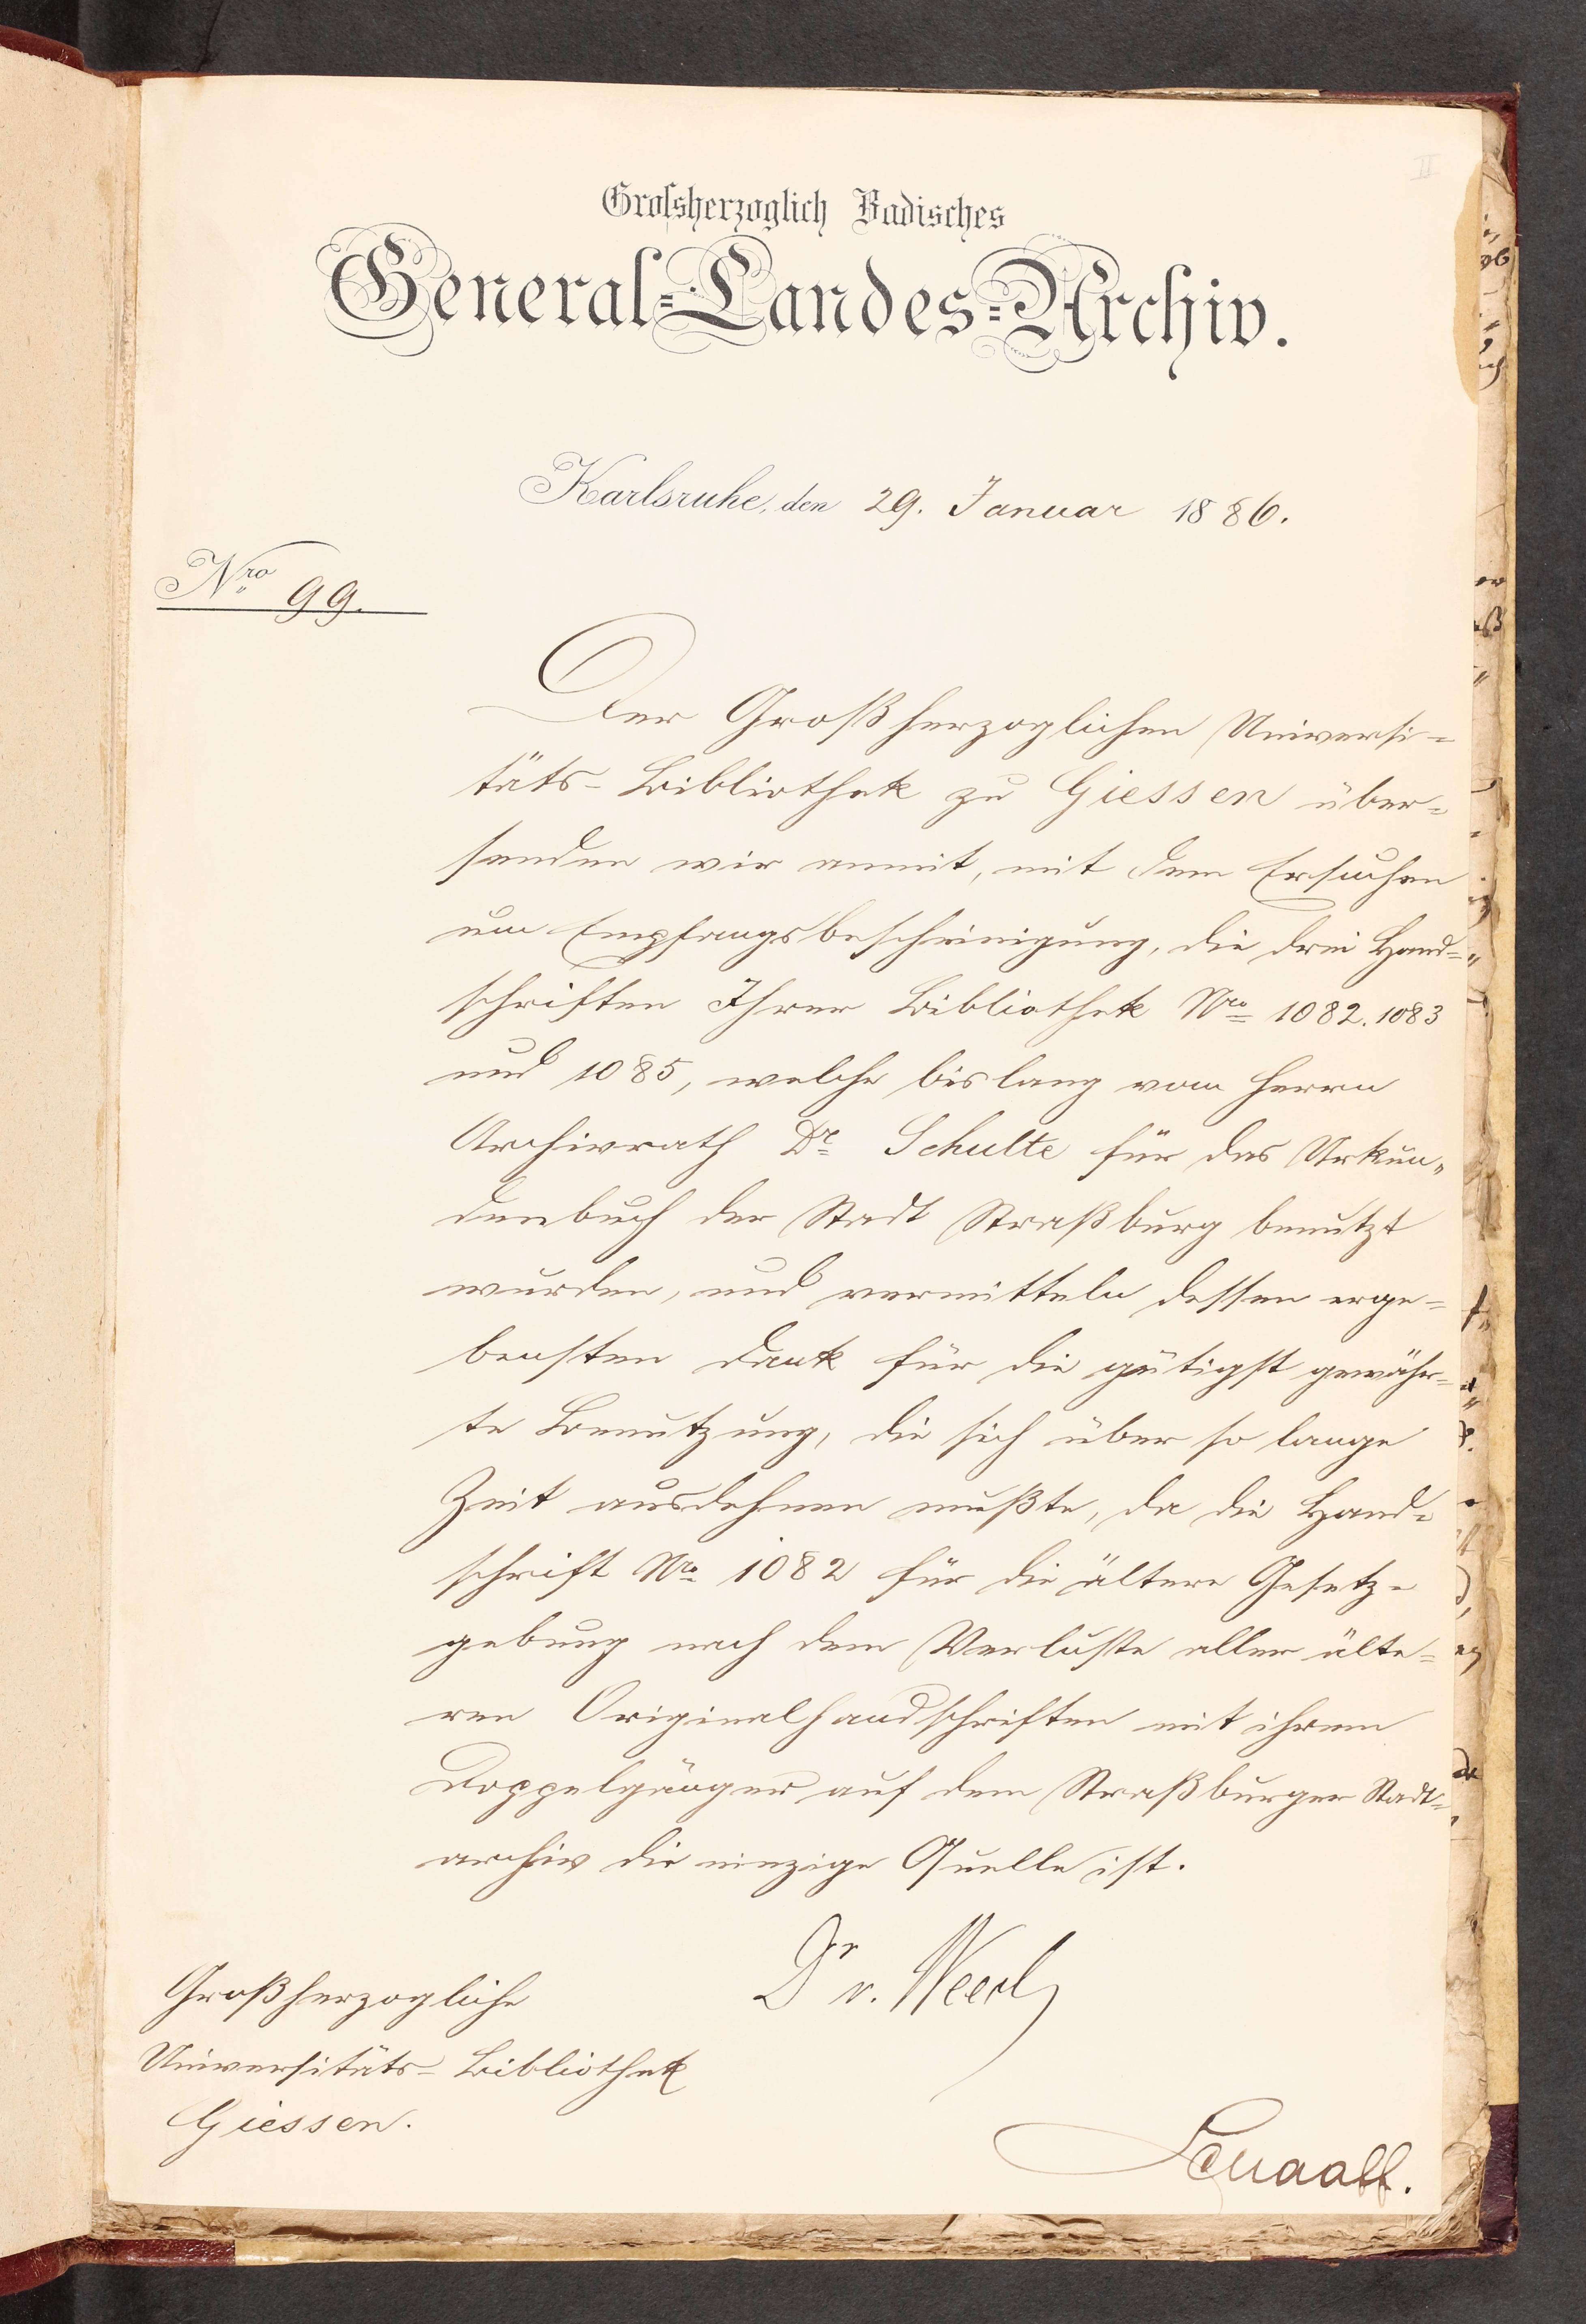 II
Grofsherzoglich Badisches
General-Landes-Archiv.
Karlsruhe, den 29. Januar 1886.
Nro 99.
Der Großherzoglichen Universi=
täts-Bibliothek zu Giessen über=
senden wir anmit, mit dem Ersuchen
um Empfangsbescheinigung, die drei Hand=
schriften Ihrer Bibliothek Nro 1082. 1083
und 1085, welche bislang vom Herrn
Archivrath Dr Schulte für das Urkun„
denbuch der Stadt Straßburg benutzt
wurden, und vermitteln dessen erge=
bensten Dank für die gütigst gewähr=
te Benutzung, die sich über so lange
Zeit ausdehnen mußte, da die Hand=
schrift Nro 1082 für die ältere Gesetz=
gebung nach dem Verluste aller älte=
ren Originalhandschriften mit ihrem
Doppelgänger auf dem Straßburger Stadt=
archiv die einzige Quelle ist.
Dr v. Weech
Großherzogliche
Universitäts-Bibliothek
Giessen.